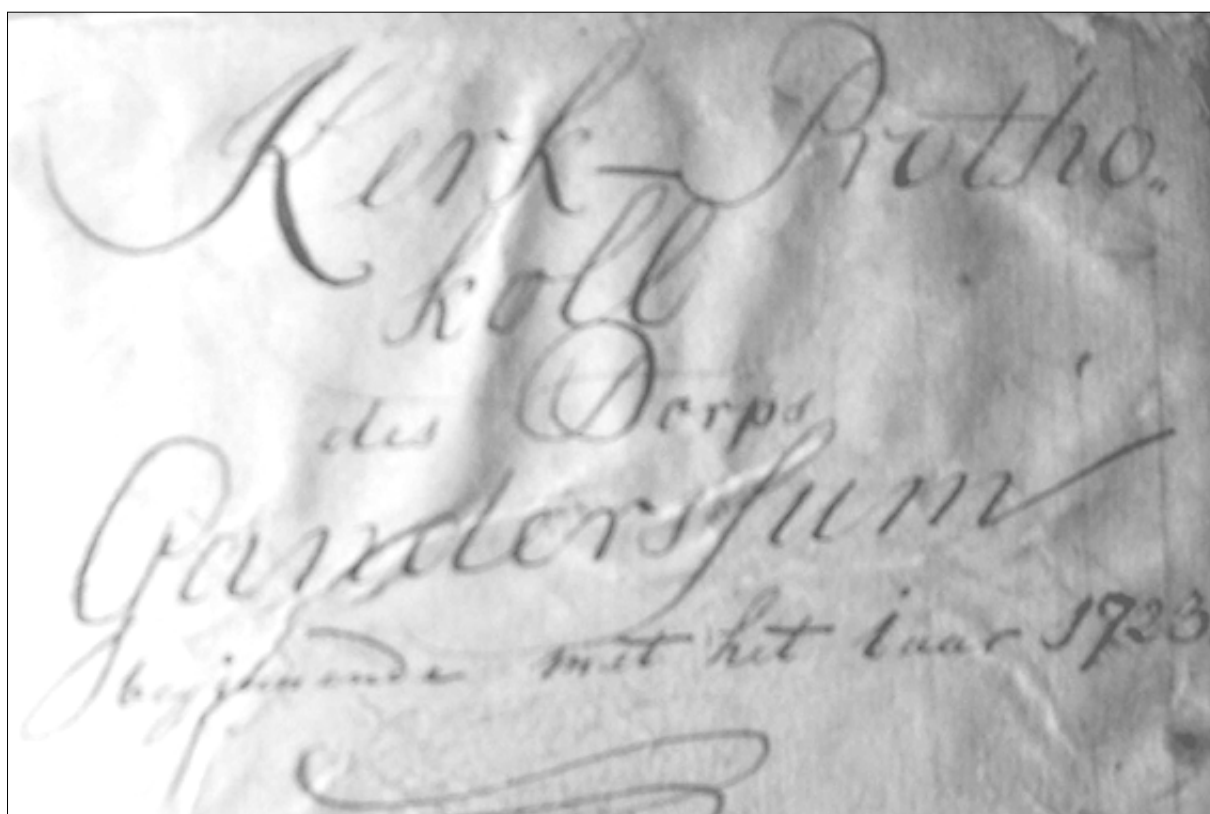 Kerk-Protho„
koll
des Dorps
Ganderssum
beginnende met het iaar 1723